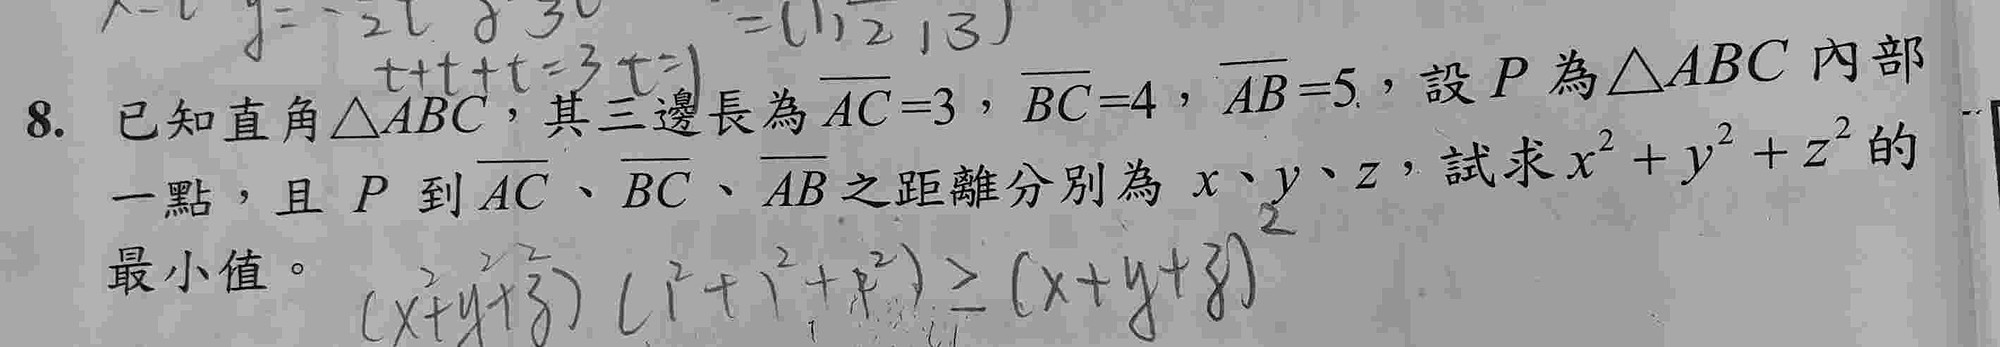 t+t+t=3 t=1
8. 已知直角△ABC，其三邊長為 AC=3，BC=4，AB=5，設 P 為△ABC 內部
一點，且 P 到 AC、BC、AB 之距離分別為 x、y、z，試求 x²+y²+z² 的
最小值。
(x²+y²+z²)(1²+1²+1²)≥(x+y+z)²